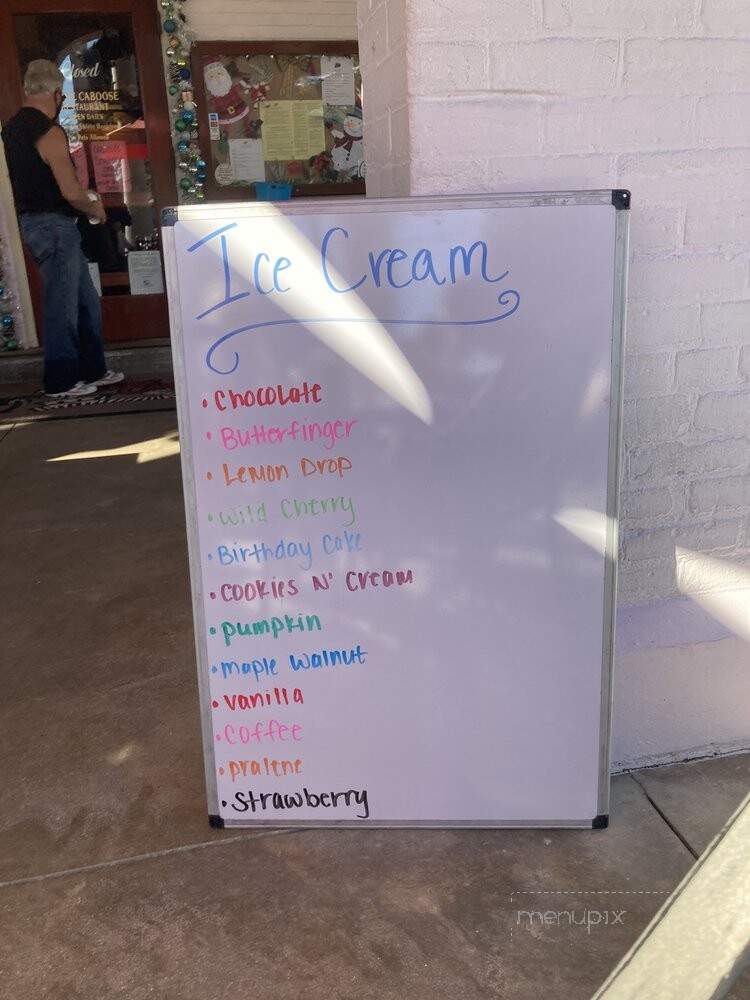 closed
CABOOSE
RESTAURANT
OPEN DAILY
Ice Cream
• Chocolate
• Butterfinger
• Lemon Drop
• Wild Cherry
• Birthday Cake
• Cookies N' Cream
• pumpkin
• maple walnut
• vanilla
• coffee
• pralene
• strawberry
menupix